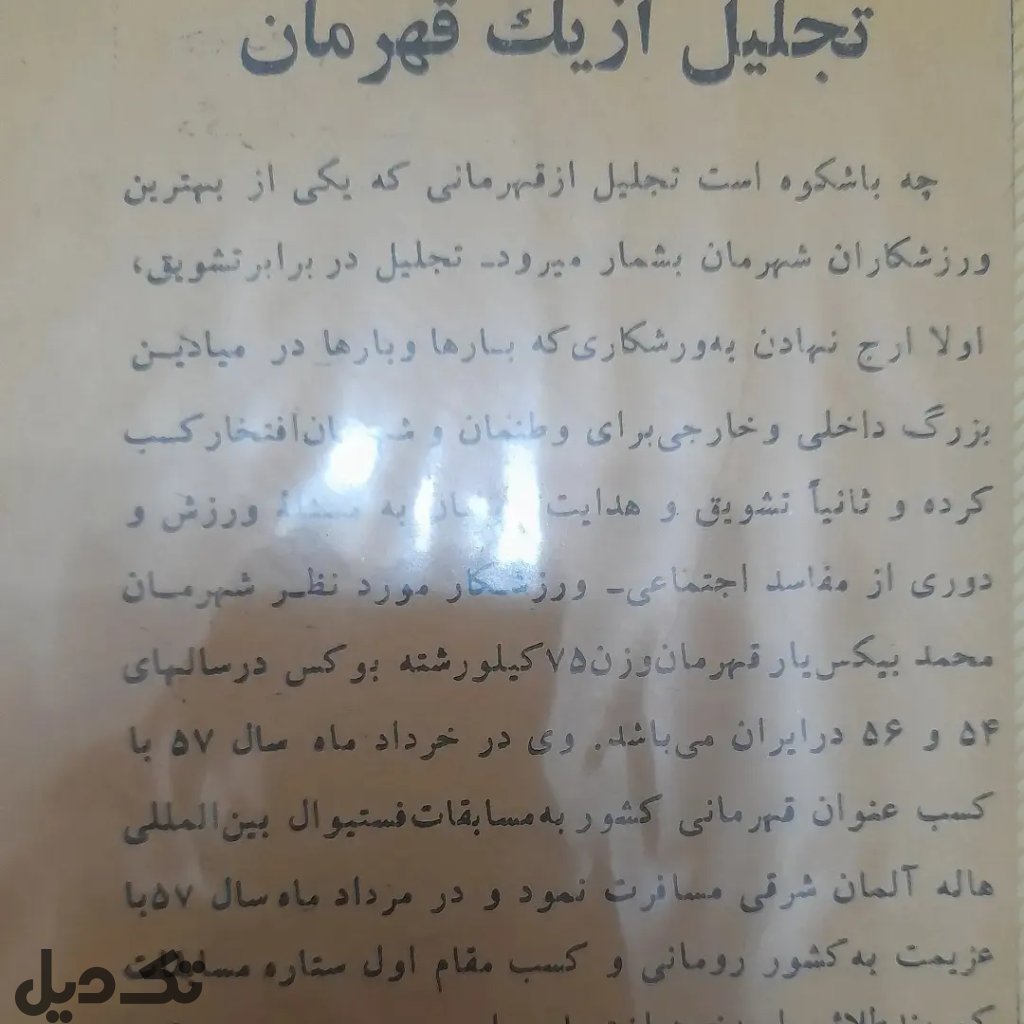 تجلیل از یك قهرمان
چه باشکوه است تجلیل ازقهرمانی که یکی از بهترین
ورزشکاران شهرمان بشمار میرود۔ تجلیل در برابر تشویق،
اولا ارج نهادن به‌ورشکاری‌که بـارها وبارها در میادیـن
بزرگ داخلی وخارجی‌برای وطنمان و افتخارکسب
کرده و ثانیاً تشویق و هدایت به ورزش و
دوری از مفاسد اجتماعی۔ ورزشـکار مورد نظـر شهرمـان
محمد بیکس‌یار قهرمان‌وزن۷۵کیلورشته بوکس درسالهای
۵۴ و ۵۶ درایران می‌باشد. وی در خرداد ماه سال ۵۷ با
کسب عنوان قهرمانی کشور به‌مسابقات‌فستیوال بین‌المللی
هاله آلمان شرقی مسافرت نمود و در مرداد ماه سال ۵۷با
عزیمت به‌کشور رومانی و کسب مقام اول ستاره مسابقات
تک دیل